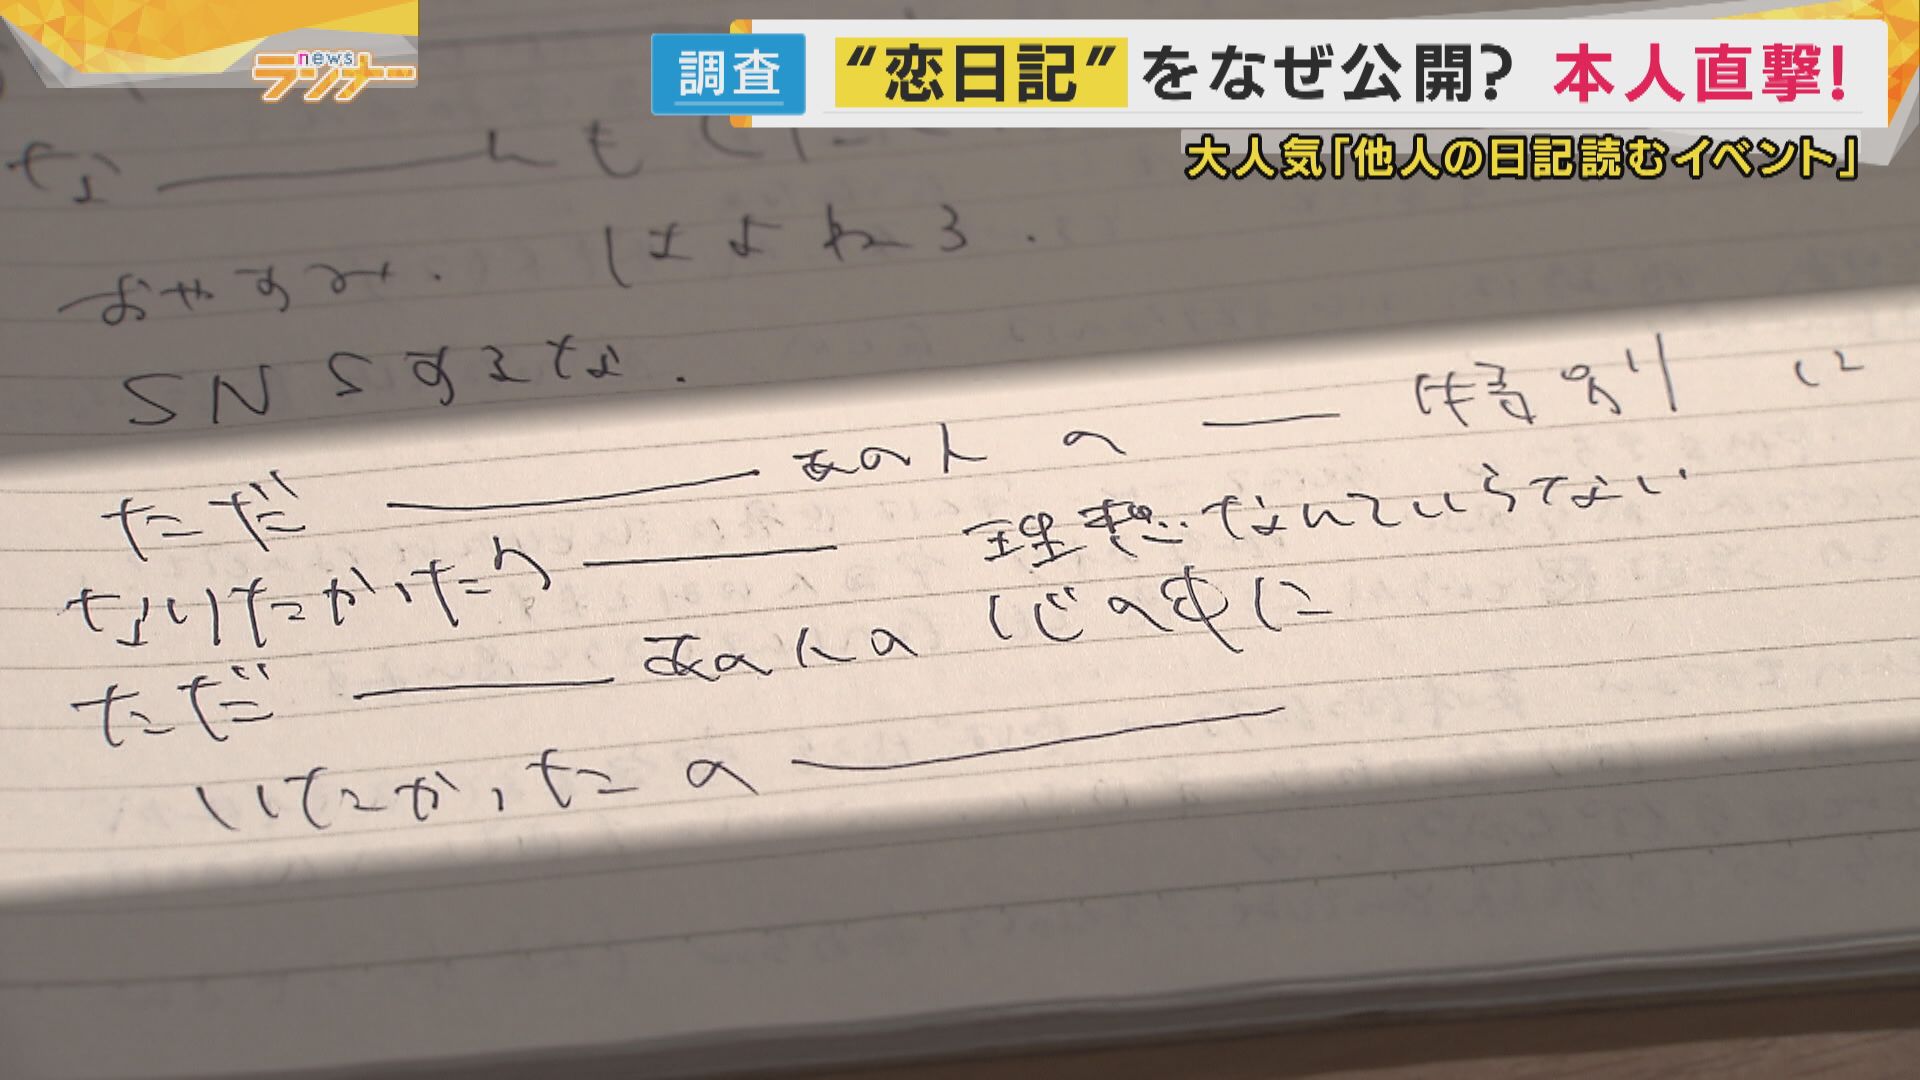 news
ランナー
調査
“恋日記”をなぜ公開? 本人直撃!
大人気「他人の日記読むイベント」
な――んも
おやすみ. はよねろ.
SNSするな.
ただ ―――あの人の ― 特別 に
なりたかった ――― 理想なんていらない
ただ ――― あの人の 心の中に
いたかったの ―――